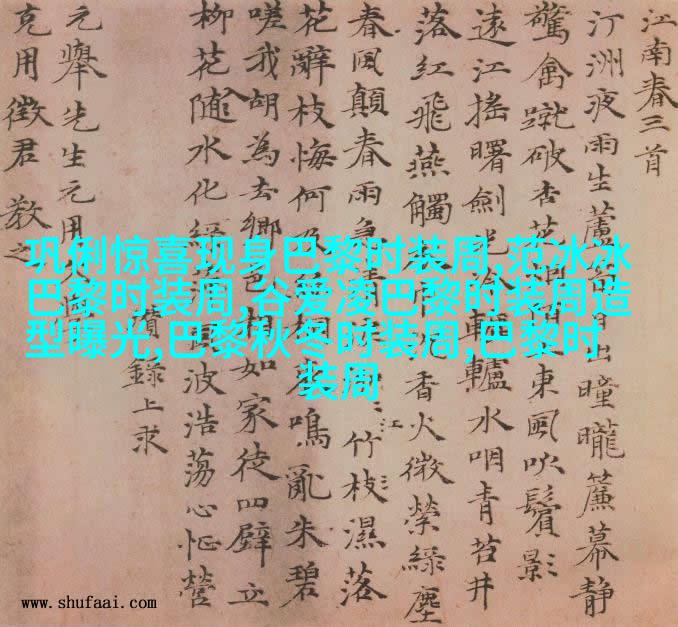 江南春三首
汀洲夜雨生蘆
日出曈曨簾幕靜
驚禽蹴破杏花
東風吹鬢影
遠江搖曙劍光冷
轆轤水咽青苔井
落紅飛燕觸
香火微縈綠塵
春風顛春雨急
江
竹枝濕落
花辭枝悔何
鳴亂朱碧
嗟我胡為去鄉邑
如家徒四壁立
柳花隨水化
風波浩蕩心怔營
元舉先生元用
克用徵君教之
錄上求
巩俐惊喜现身巴黎时装周,范冰冰
巴黎时装周,谷爱凌巴黎时装周造
型曝光,巴黎秋冬时装周,巴黎时
装周
www.shufaai.com